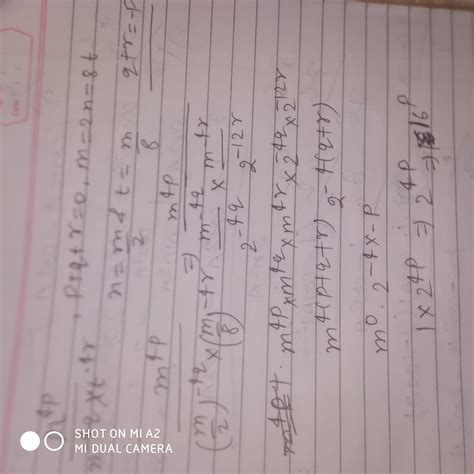 m^4p
, p+q+r=0, m=2n=8t
n = m/2 & t = m/8
q+r=-p
m^4p / (m/2)^-4q × (m/8)^-4r = m^4p / m^-4q/2^-4q × m^-4r/2^-12r
m^4p × m^4q × m^4r × 2^-4q × 2^-12r
m^4(p+q+r) 2^-4(q+r)
m^0 . 2^-4x-p
1×2^4p ⇒ 2^4p ⇒ 16^p
SHOT ON MI A2
MI DUAL CAMERA